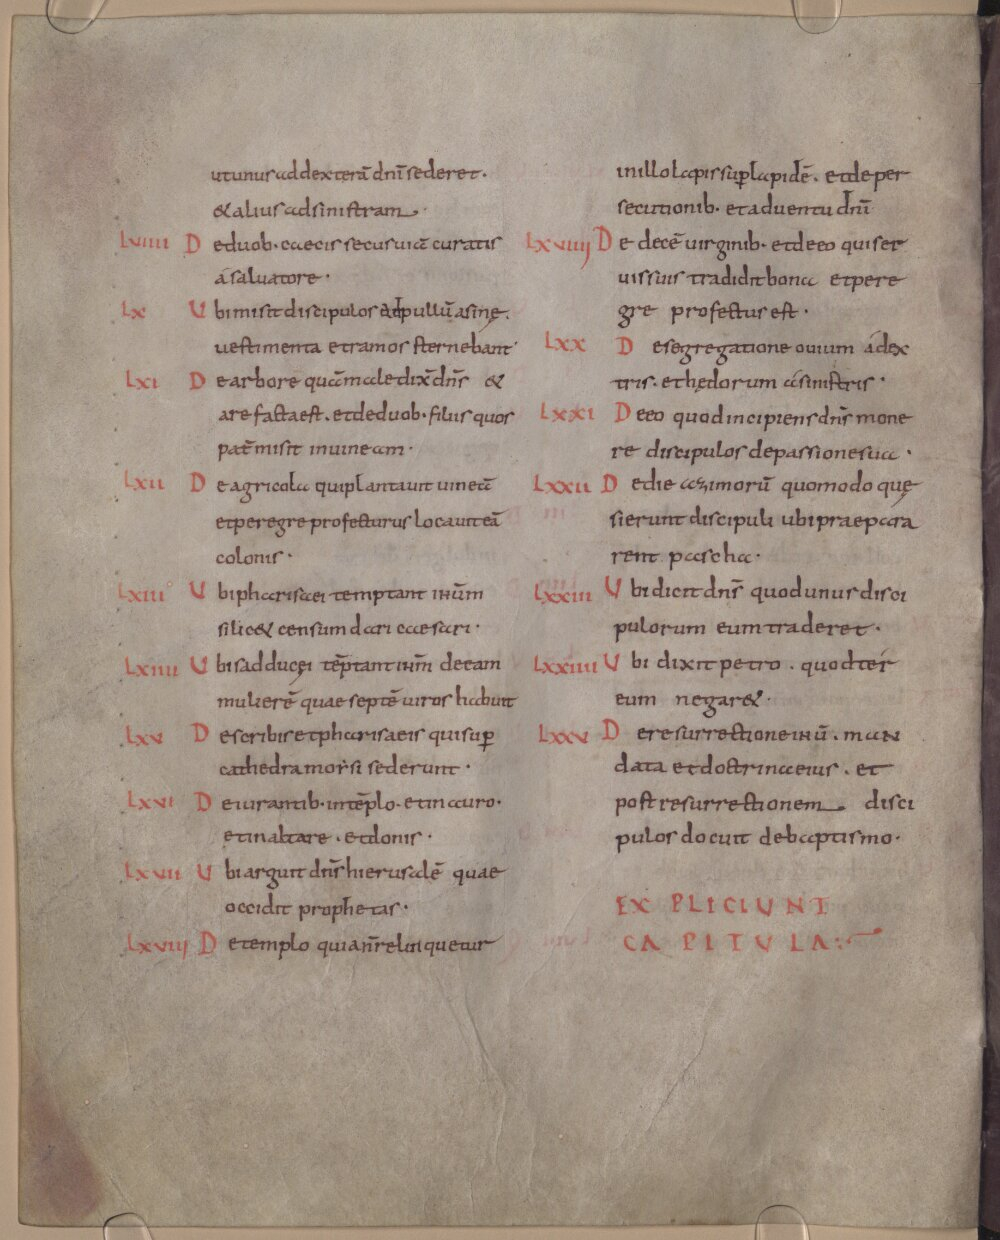 ut unus ad dexterā dnī sederet.
& alius ad sinistram.
LVIIII De duob. caecis secus uiā curatis
á saluatore.
LX Ubi misit discipulos ad pullū asinę.
uestimenta et ramos sternebant
LXI De arbore quā maledix̄ dn̄s &
arefacta est. et de duob. filiis quos
pat̄ misit in uineam.
LXII De agricola qui plantauit uineā
et peregre profecturus locauit eā
colonis.
LXIII Ubi pharisaei temptant ihūm
si lic& censum dari caesari.
LXIIII Ubi sadducęi tēptant ihm̄ de eam
mulierē quae septē uiros habuit
LXV De scribis et pharisaeis qui sup̄
cathedra morsi sederunt.
LXVI De iurantib. in tēplo. et in auro.
et in altare. et donis.
LXVII Ubi arguit dn̄s hierusalē quae
occidit prophetas.
LXVIII De templo quia nr̄ relinquetur
in illo lapis sup̄ lapidē. et de per
secutionib. et aduentu dnī
LXVIIII De decē uirginib. et de eo qui ser
uis suis tradidit bona et pere
gre profectus est.
LXX De segregatione ouium á dex
tris. et hędorum á sinistris.
LXXI De eo quod incipiens dn̄s mone
re discipulos de passione sua.
LXXII De die azimorū quomodo quę
sierunt discipuli ubi praepara
rent pascha.
LXXIII Ubi dicit dn̄s quod unus disci
pulorum eum traderet.
LXXIIII Ubi dixit petro. quod ter
eum negar&.
LXXV De resurrectione ihū. man
data et doctrina eius. et
post resurrectionem disci
pulos docuit de baptismo.
EXPLICIUNT
CAPITULA: